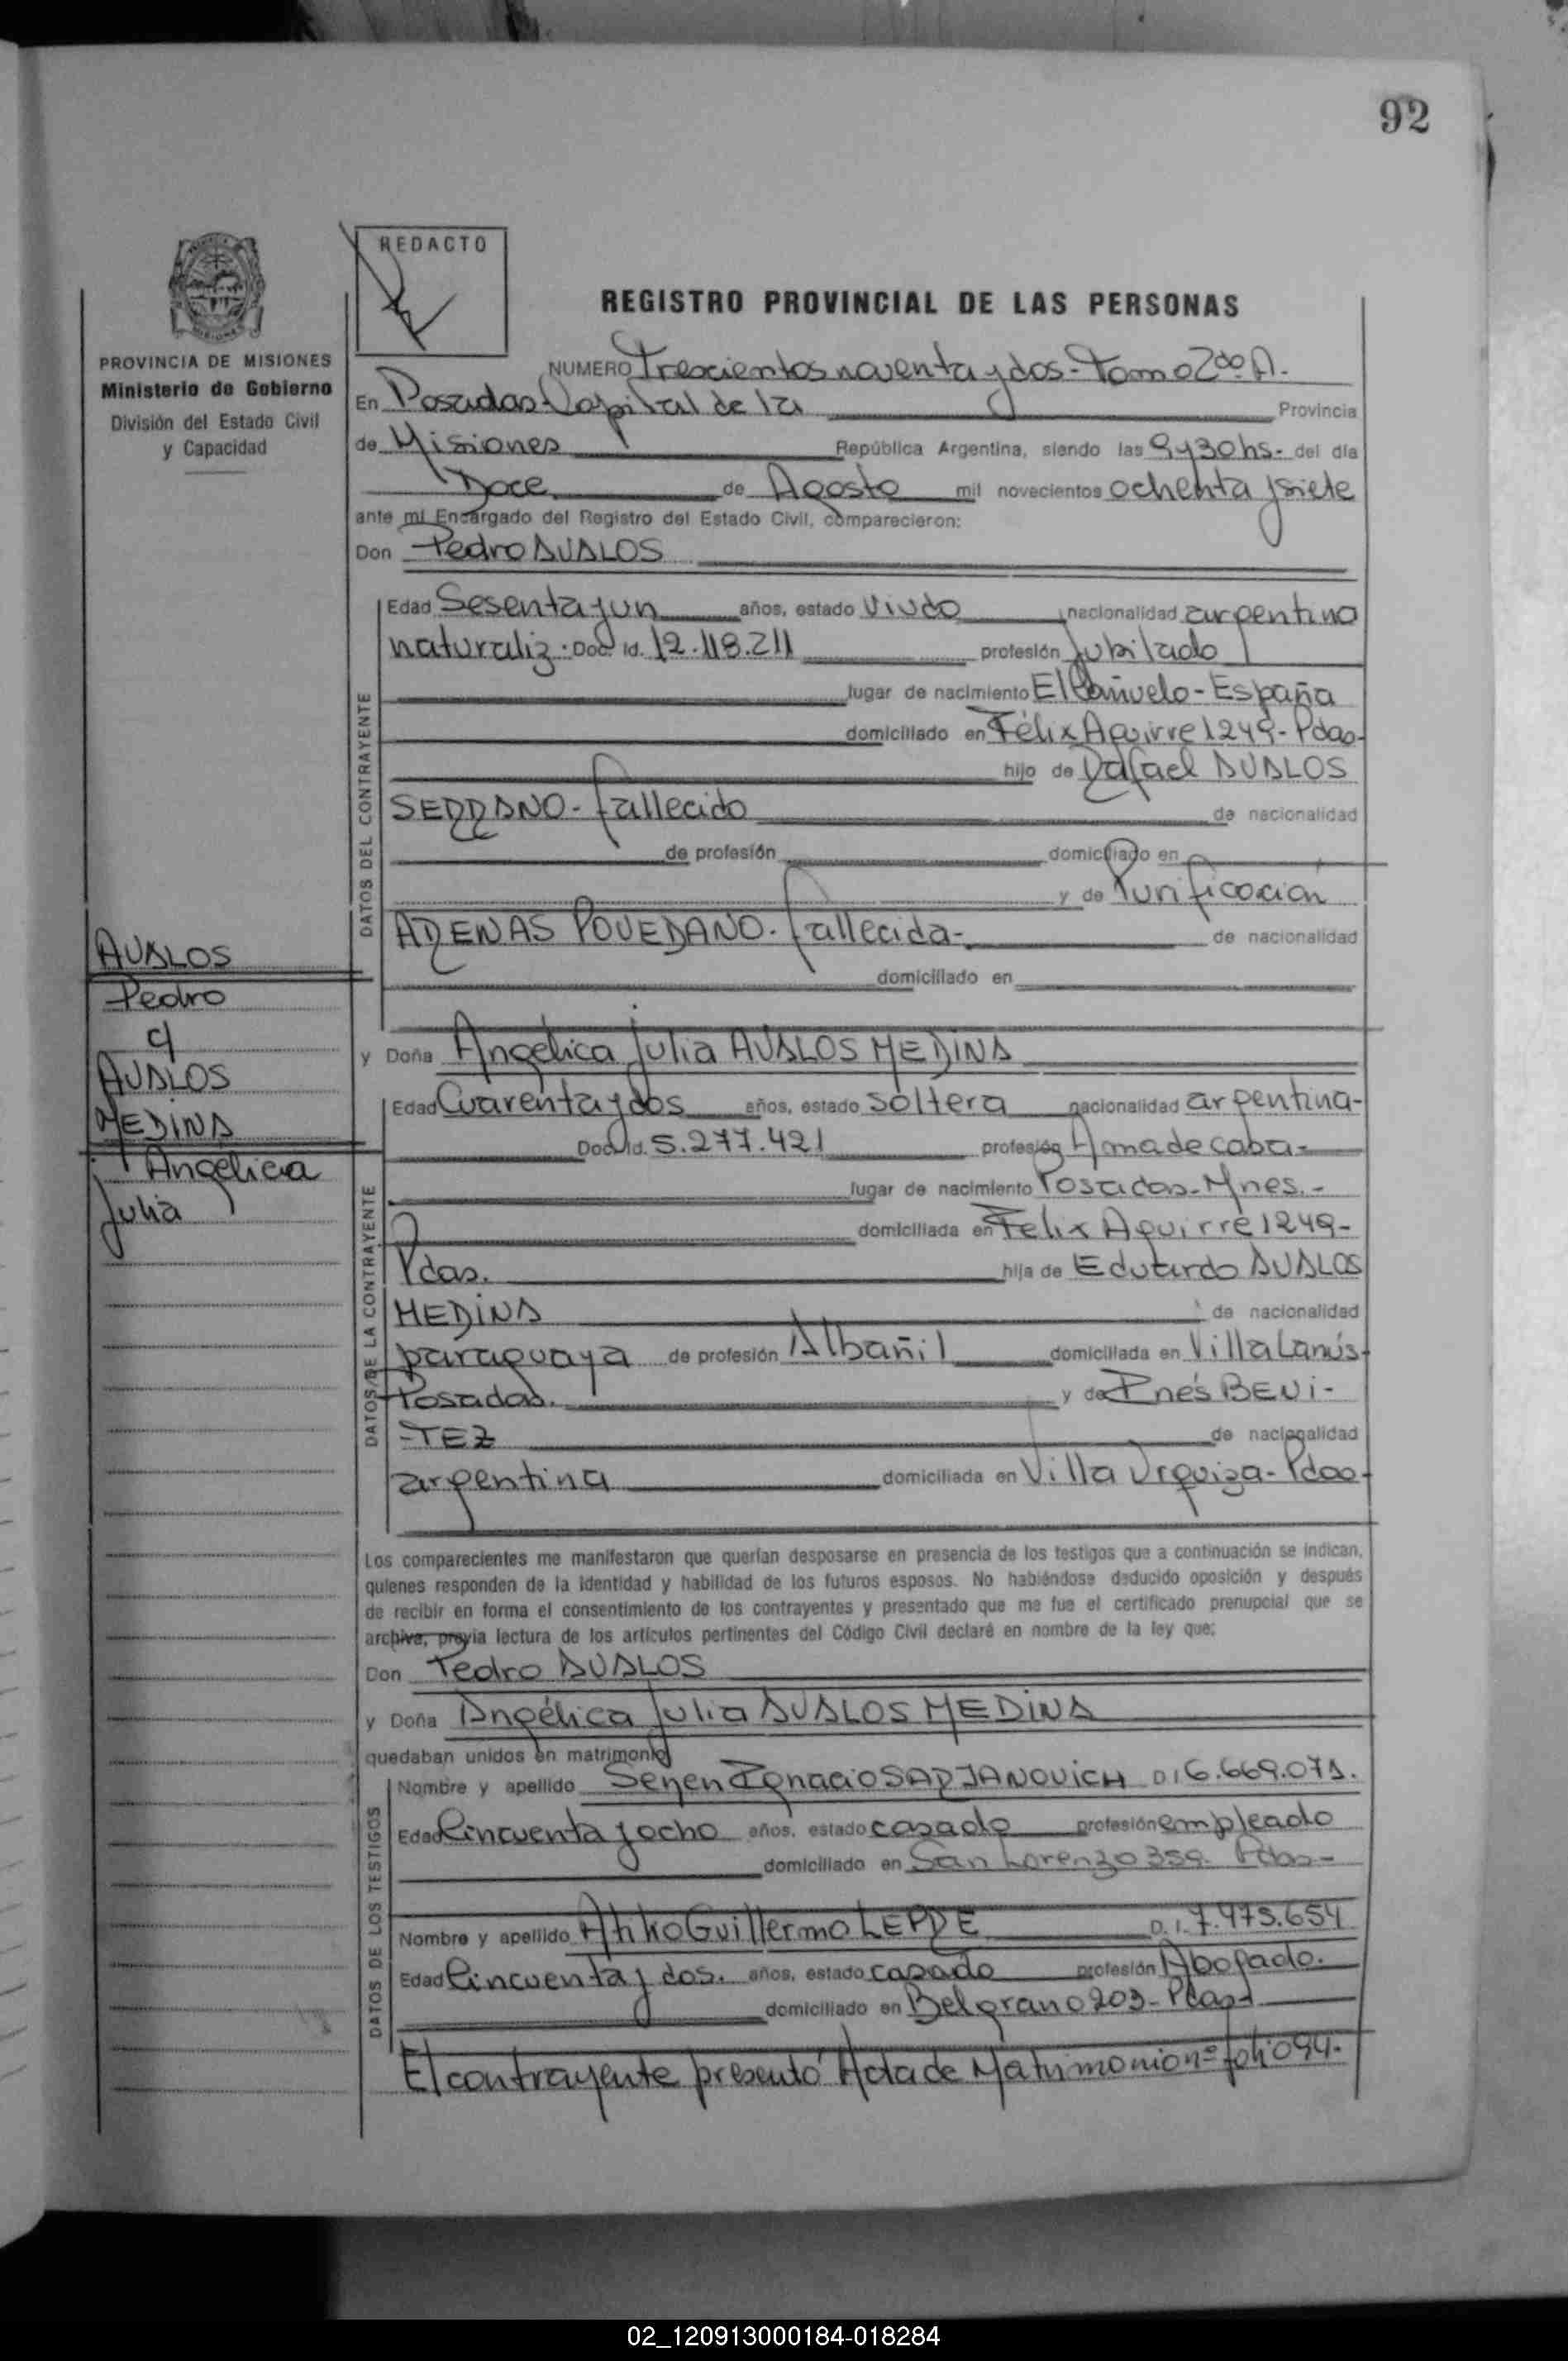 92
REDACTO
REGISTRO PROVINCIAL DE LAS PERSONAS
PROVINCIA DE MISIONES
Ministerio de Gobierno
División del Estado Civil
y Capacidad
NUMERO Trescientos noventa y dos - Tomo 2do A.
En Posadas Capital de la Provincia
de Misiones República Argentina, siendo las 9 y 30 hs. del día
Doce de Agosto mil novecientos ochenta y siete
ante mi Encargado del Registro del Estado Civil, comparecieron:
Don Pedro AVALOS
DATOS DEL CONTRAYENTE
Edad Sesenta y un años, estado Viudo nacionalidad argentino
naturaliz. Doc. Id. 12.118.211 profesión Jubilado
lugar de nacimiento El Cañuelo - España
domiciliado en Félix Aguirre 1249 - Pdas -
hijo de Rafael AVALOS
SERRANO - fallecido de nacionalidad
de profesión domiciliado en
y de Purificación
ARENAS POVEDANO - fallecida - de nacionalidad
domiciliado en
AVALOS
Pedro
c/
AVALOS
MEDINA
Angélica
Julia
y Doña Angélica Julia AVALOS MEDINA
DATOS DE LA CONTRAYENTE
Edad Cuarenta y dos años, estado soltera nacionalidad argentina -
Doc. Id. 5.277.421 profesión Ama de casa -
lugar de nacimiento Posadas - Mnes. -
domiciliada en Felix Aguirre 1249 -
Pdas. hija de Eduardo AVALOS
MEDINA de nacionalidad
paraguaya de profesión Albañil domiciliada en Villa Lanús -
Posadas. y de Inés BENI-
TEZ de nacionalidad
argentina domiciliada en Villa Urquiza - Pdas -
Los comparecientes me manifestaron que querían desposarse en presencia de los testigos que a continuación se indican,
quienes responden de la identidad y habilidad de los futuros esposos. No habiéndose deducido oposición y después
de recibir en forma el consentimiento de los contrayentes y presentado que me fue el certificado prenupcial que se
archiva, previa lectura de los artículos pertinentes del Código Civil declaré en nombre de la ley que:
Don Pedro AVALOS
y Doña Angélica Julia AVALOS MEDINA
quedaban unidos en matrimonio
DATOS DE LOS TESTIGOS
Nombre y apellido Senen Ignacio SARJANOVICH D.I. 6.669.071.
Edad Cincuenta y ocho años, estado casado profesión empleado
domiciliado en San Lorenzo 359 Pdas -
Nombre y apellido Atiko Guillermo LERDE D.I. 7.473.654
Edad Cincuenta y dos. años, estado casado profesión Abogado.
domiciliado en Belgrano 203 - Pdas -
El contrayente presentó Acta de Matrimonio nº folio 94 -
02_120913000184-018284